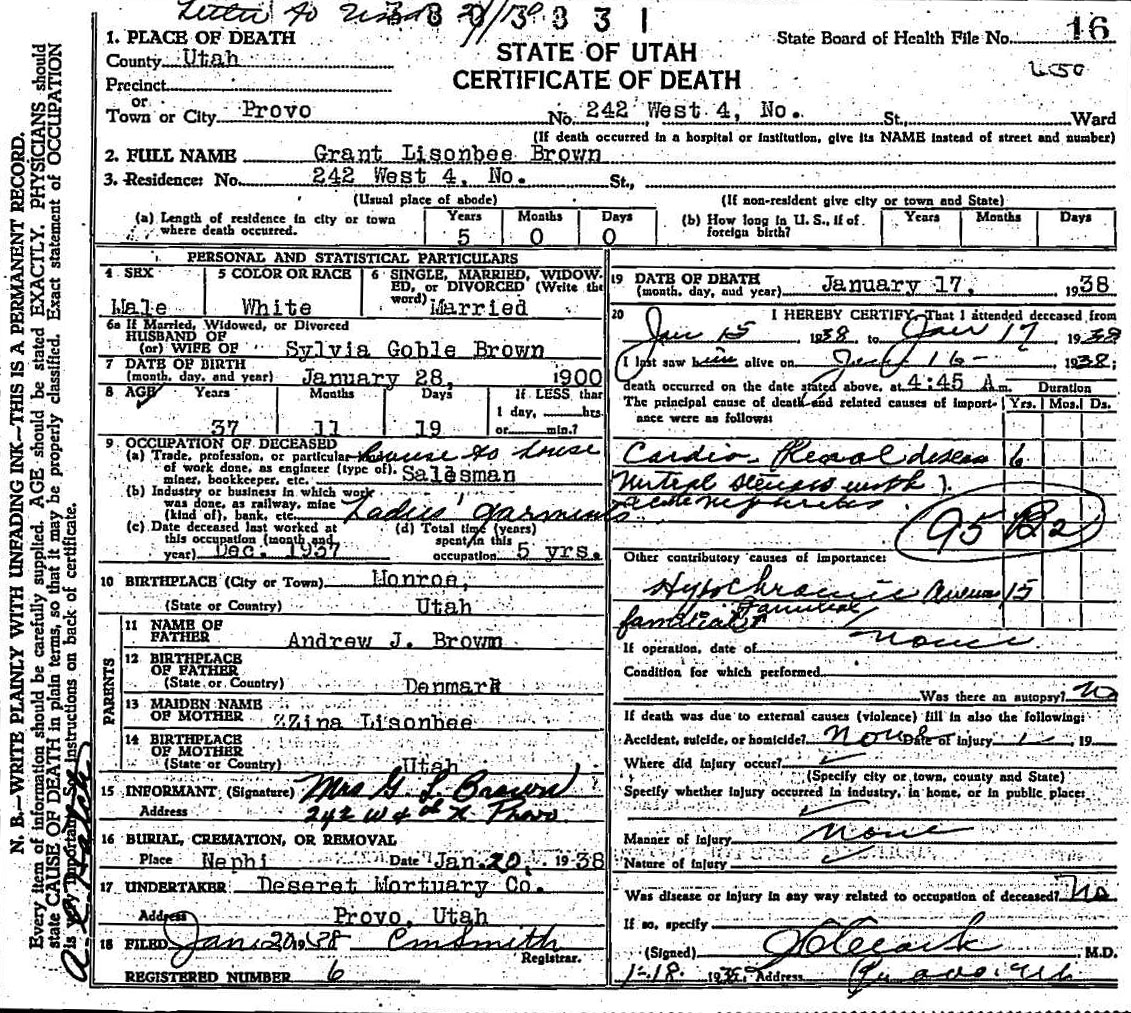 3 8 0 3 3 3 1
1. PLACE OF DEATH
County Utah
Precinct
or
Town or City Provo
STATE OF UTAH
CERTIFICATE OF DEATH
State Board of Health File No. 16
No. 242 West 4, No. St., Ward
(If death occurred in a hospital or institution, give its NAME instead of street and number)
2. FULL NAME Grant Lisonbee Brown
3. Residence: No. 242 West 4, No. St.,
(Usual place of abode) (If non-resident give city or town and State)
(a) Length of residence in city or town where death occurred. Years 5 Months 0 Days 0
(b) How long in U. S., if of foreign birth? Years Months Days
PERSONAL AND STATISTICAL PARTICULARS
4 SEX Male
5 COLOR OR RACE White
6 SINGLE, MARRIED, WIDOWED, or DIVORCED (Write the word) Married
6a If Married, Widowed, or Divorced
HUSBAND OF
(or) WIFE OF Sylvia Goble Brown
7 DATE OF BIRTH
(month, day, and year) January 28, 1900
8 AGE Years 37 Months 11 Days 19
If LESS than 1 day, hrs. or min.?
9 OCCUPATION OF DECEASED
(a) Trade, profession, or particular kind of work done, as engineer (type of), miner, bookkeeper, etc. house to house Salesman
(b) Industry or business in which work was done, as railway, mine (kind of), bank, etc. Ladies' garments
(c) Date deceased last worked at this occupation (month and year) Dec. 1937
(d) Total time (years) spent in this occupation 5 yrs.
10 BIRTHPLACE (City or Town) Monroe,
(State or Country) Utah
PARENTS
11 NAME OF FATHER Andrew J. Brown
12 BIRTHPLACE OF FATHER
(State or Country) Denmark
13 MAIDEN NAME OF MOTHER ZZina Lisonbee
14 BIRTHPLACE OF MOTHER
(State or Country) Utah
15 INFORMANT (Signature) Mrs G. L. Brown
Address 242 W 4th N. Provo
16 BURIAL, CREMATION, OR REMOVAL
Place Nephi Date Jan. 20, 1938
17 UNDERTAKER Deseret Mortuary Co.
Address Provo, Utah
18 FILED Jan. 20 1938 CM Smith
Registrar.
REGISTERED NUMBER 6
19 DATE OF DEATH
(month, day, and year) January 17, 1938
20 I HEREBY CERTIFY, That I attended deceased from
Jan 15 1938 to Jan 17 1938
I last saw him alive on 16 - 1938;
death occurred on the date stated above, at 4:45 A m. Duration
The principal cause of death and related causes of importance were as follows: Yrs. Mos. Ds.
Cardio-Renal disease 6
Mitral stenosis with
acute nephritis
95 B2
Other contributory causes of importance:
Hypochromic anemia 15
familial Familial
If operation, date of none
Condition for which performed
Was there an autopsy? No
If death was due to external causes (violence) fill in also the following:
Accident, suicide, or homicide? None Date of injury 19
Where did injury occur?
(Specify city or town, county and State)
Specify whether injury occurred in industry, in home, or in public place:
Manner of injury none
Nature of injury
Was disease or injury in any way related to occupation of deceased? No
If so, specify
(Signed) M.D.
1-18 1938 Address Provo, Ut.
N. B.—WRITE PLAINLY WITH UNFADING INK—THIS IS A PERMANENT RECORD.
Every item of information should be carefully supplied. AGE should be stated EXACTLY. PHYSICIANS should
state CAUSE OF DEATH in plain terms, so that it may be properly classified. Exact statement of OCCUPATION
is very important. See instructions on back of certificate.